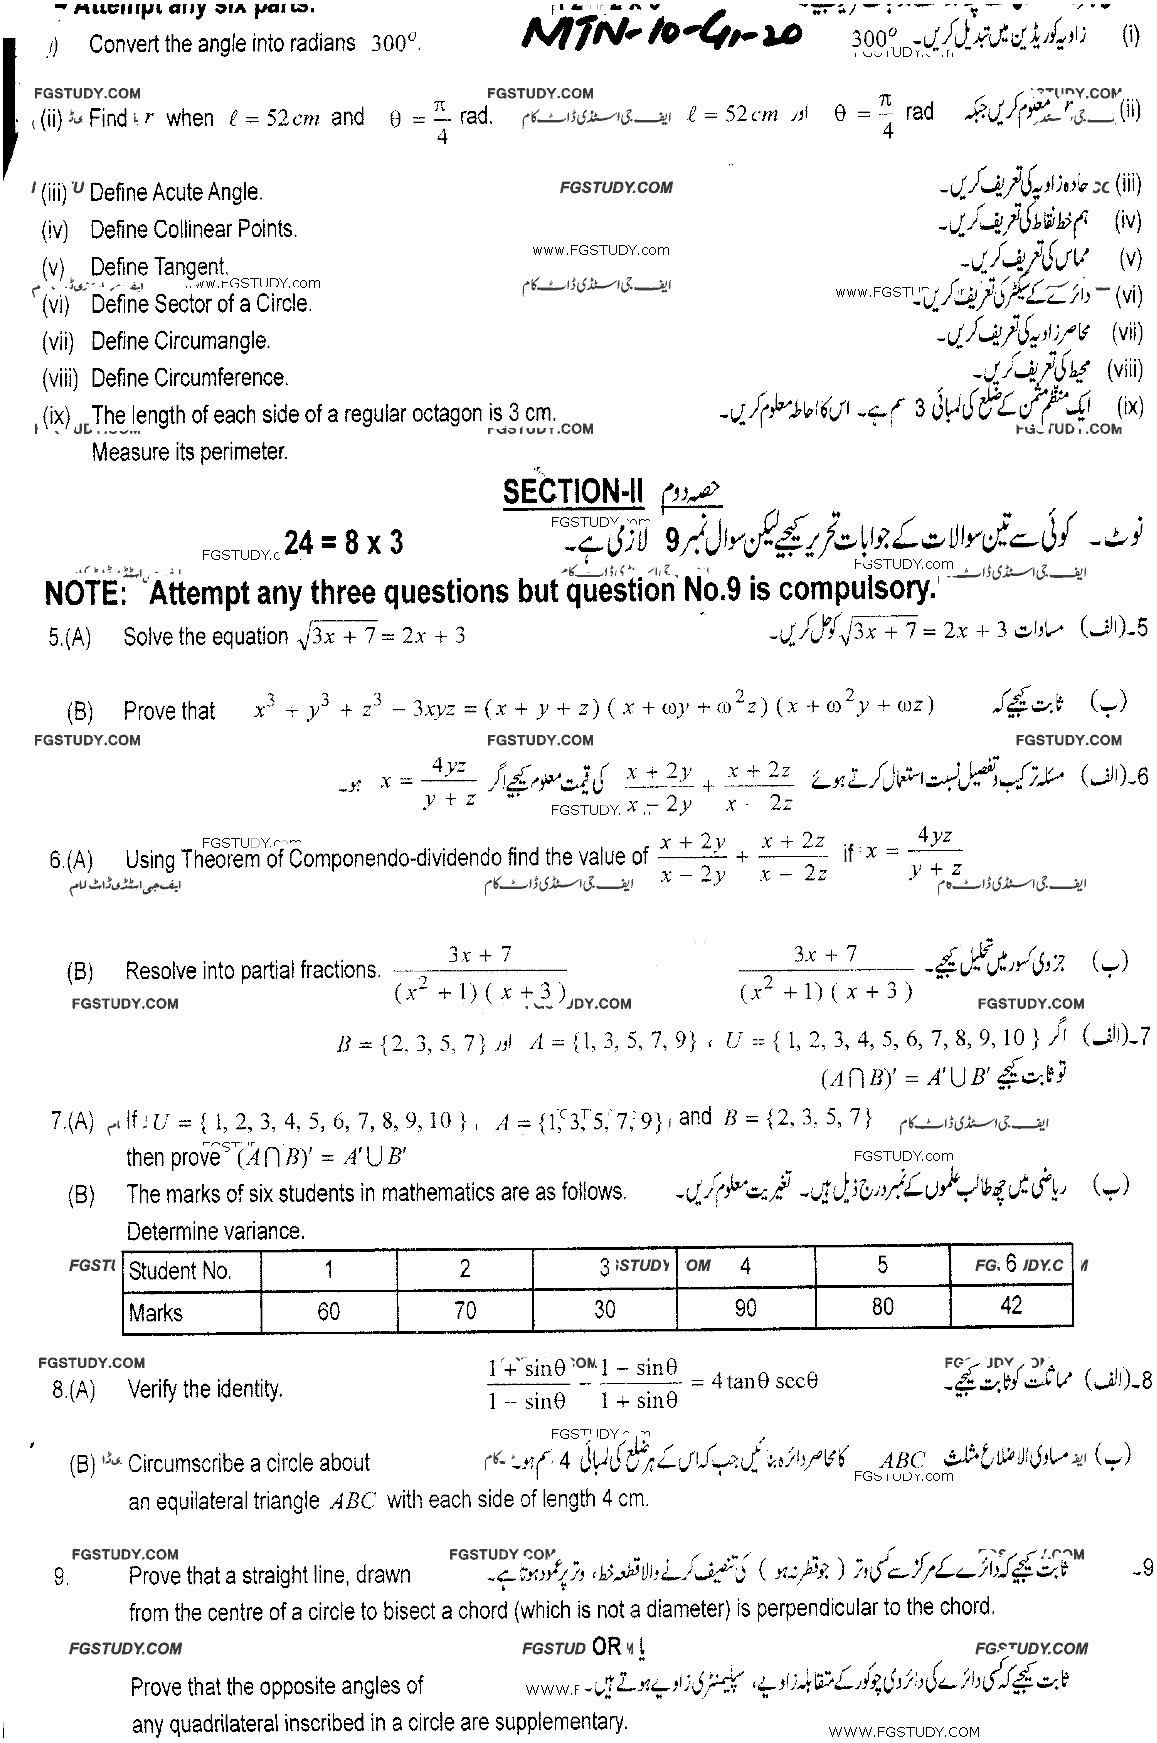 – Attempt any six parts.
MTN-10-G1-20
i) Convert the angle into radians 300°. 300° زاویہ کو ریڈین میں تبدیل کریں۔ (i)
FGSTUDY.COM FGSTUDY.COM
(ii) Find r when ℓ = 52cm and θ = π/4 rad. ایف جی اسٹڈی ڈاٹ کام ℓ = 52cm اور θ = π/4 rad معلوم کریں جبکہ r (ii)
(iii) Define Acute Angle. FGSTUDY.COM حادہ زاویہ کی تعریف کریں۔ (iii)
(iv) Define Collinear Points. ہم خط نقاط کی تعریف کریں۔ (iv)
www.FGSTUDY.com
(v) Define Tangent. مماس کی تعریف کریں۔ (v)
www.FGSTUDY.com ایف جی اسٹڈی ڈاٹ کام
(vi) Define Sector of a Circle. دائرے کے سیکٹر کی تعریف کریں۔ (vi)
(vii) Define Circumangle. محاصر زاویہ کی تعریف کریں۔ (vii)
(viii) Define Circumference. محیط کی تعریف کریں۔ (viii)
(ix) The length of each side of a regular octagon is 3 cm. ایک منظم مثمن کے ضلع کی لمبائی 3 سم ہے۔ اس کا احاطہ معلوم کریں۔ (ix)
Measure its perimeter.
SECTION-II حصہ دوم
24 = 8 x 3 نوٹ۔ کوئی سے تین سوالات کے جوابات تحریر کیجئے لیکن سوال نمبر 9 لازمی ہے۔
FGSTUDY.com ایف جی اسٹڈی ڈاٹ کام
NOTE: Attempt any three questions but question No.9 is compulsory.
5.(A) Solve the equation √(3x + 7) = 2x + 3 مساوات √(3x + 7) = 2x + 3 کو حل کریں۔ 5۔(الف)
(B) Prove that x³ + y³ + z³ − 3xyz = (x + y + z)(x + ωy + ω²z)(x + ω²y + ωz) ثابت کیجئے کہ (ب)
FGSTUDY.COM FGSTUDY.COM FGSTUDY.COM
6۔(الف) مسئلہ ترکیب و تفصیل نسبت استعمال کرتے ہوئے (x + 2y)/(x − 2y) + (x + 2z)/(x − 2z) کی قیمت معلوم کیجئے اگر x = 4yz/(y + z) ہو۔
6.(A) Using Theorem of Componendo-dividendo find the value of (x + 2y)/(x − 2y) + (x + 2z)/(x − 2z) if x = 4yz/(y + z)
ایف جی اسٹڈی ڈاٹ کام ایف جی اسٹڈی ڈاٹ کام
(B) Resolve into partial fractions. (3x + 7)/((x² + 1)(x + 3)) (3x + 7)/((x² + 1)(x + 3)) جزوی کسور میں تحلیل کیجئے۔ (ب)
FGSTUDY.COM FGSTUDY.COM
7۔(الف) اگر U = { 1, 2, 3, 4, 5, 6, 7, 8, 9, 10 } ، A = {1, 3, 5, 7, 9} اور B = {2, 3, 5, 7}
تو ثابت کیجئے (A⋂B)′ = A′⋃B′
7.(A) If U = { 1, 2, 3, 4, 5, 6, 7, 8, 9, 10 }, A = {1, 3, 5, 7, 9}, and B = {2, 3, 5, 7} ایف جی اسٹڈی ڈاٹ کام
then prove (A⋂B)′ = A′⋃B′
FGSTUDY.com
(B) The marks of six students in mathematics are as follows. ریاضی میں چھ طالب علموں کے نمبر درج ذیل ہیں۔ تغیریت معلوم کریں۔ (ب)
Determine variance.
Student No. 1 2 3 4 5 6
Marks 60 70 30 90 80 42
FGSTUDY.COM
8.(A) Verify the identity. (1 + sinθ)/(1 − sinθ) − (1 − sinθ)/(1 + sinθ) = 4tanθ secθ مماثلت کو ثابت کیجئے۔ 8۔(الف)
(B) Circumscribe a circle about مساوی الاضلاع مثلث ABC کا محاصر دائرہ بنائیں جب کہ اس کے ہر ضلع کی لمبائی 4 سم ہو۔ (ب)
FGSTUDY.com
an equilateral triangle ABC with each side of length 4 cm.
FGSTUDY.COM FGSTUDY.COM
9. Prove that a straight line, drawn ثابت کیجئے کہ دائرے کے مرکز سے کسی وتر (جو قطر نہ ہو) کی تنصیف کرنے والا قطعہ خط، وتر پر عمود ہوتا ہے۔ 9۔
from the centre of a circle to bisect a chord (which is not a diameter) is perpendicular to the chord.
FGSTUDY.COM OR FGSTUDY.COM
Prove that the opposite angles of ثابت کیجئے کہ کسی دائرے کی دائروی چوکور کے متقابلہ زاویے، سپلیمنٹری زاویے ہوتے ہیں۔
any quadrilateral inscribed in a circle are supplementary.
WWW.FGSTUDY.COM